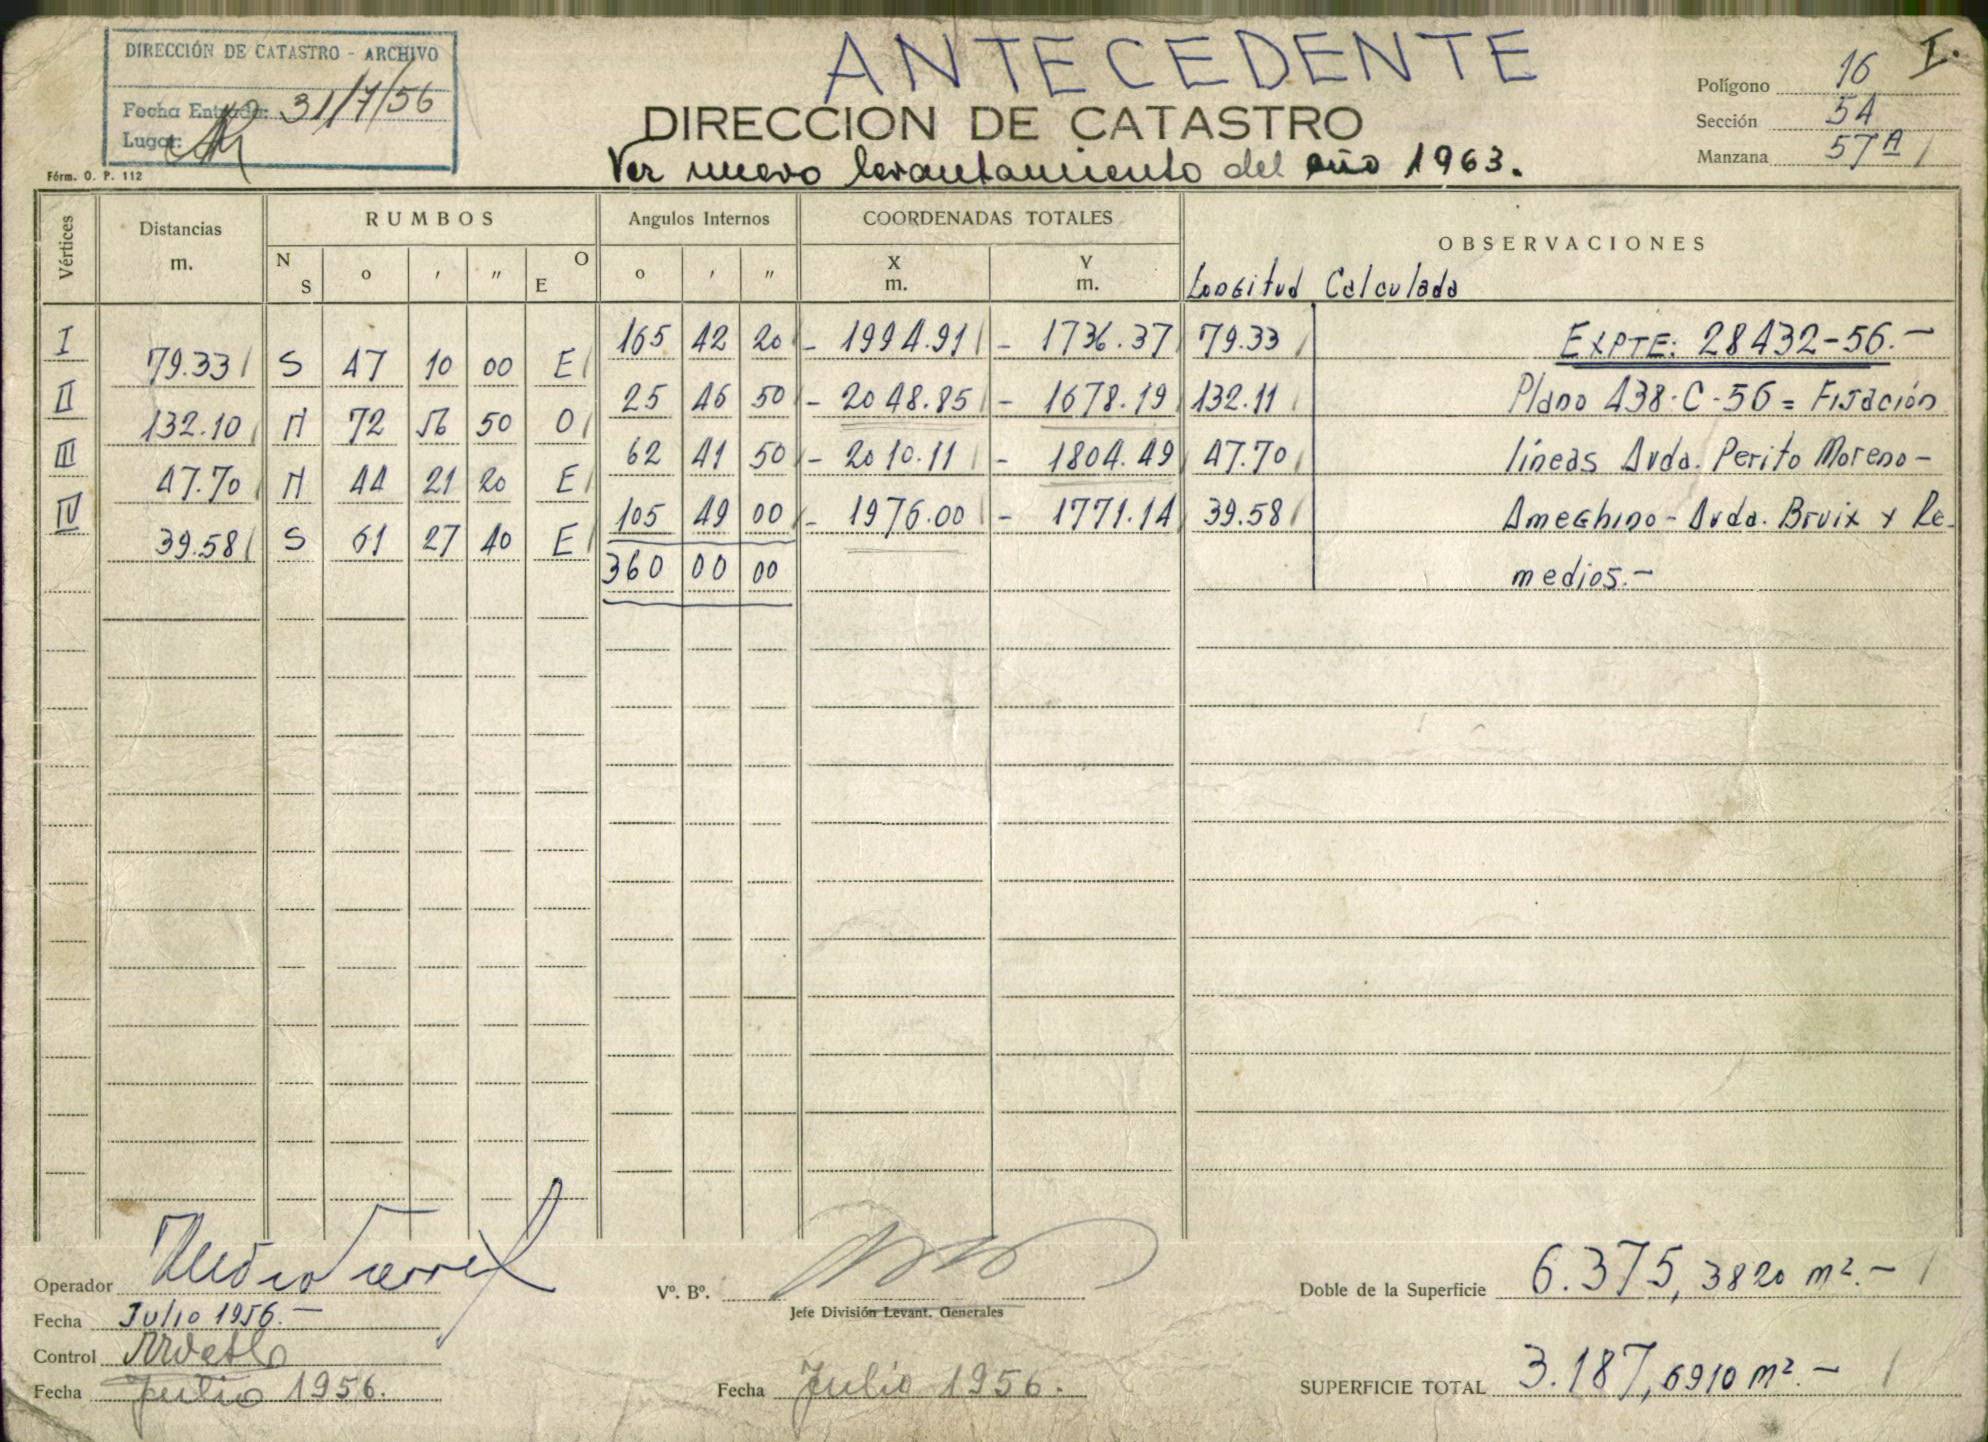 DIRECCIÓN DE CATASTRO - ARCHIVO
Fecha Entrada: 31/7/56
Lugar:
Fórm. O. P. 112
ANTECEDENTE
DIRECCION DE CATASTRO
Ver nuevo levantamiento del año 1963.
I.
Polígono 16
Sección 54
Manzana 57A
Vértices Distancias m. RUMBOS N S o ' " O E Angulos Internos o ' " COORDENADAS TOTALES X m. Y m. OBSERVACIONES
Longitud Calculada
I 165 42 20 - 1994.91 - 1736.37 79.33 EXPTE: 28432-56.-
79.33 S 47 10 00 E
II 25 46 50 - 2048.85 - 1678.19 132.11 Plano 438-C-56 = Fijación
132.10 N 72 56 50 O
III 62 41 50 - 2010.11 - 1804.49 47.70 líneas Avda. Perito Moreno-
47.70 N 44 21 20 E
IV 105 49 00 - 1976.00 - 1771.14 39.58 Ameghino - Avda. Bruix y Re-
39.58 S 61 27 40 E
360 00 00 medios.-
Operador
Fecha Julio 1956.-
Control
Fecha Julio 1956.
Vº. Bº.
Jefe División Levant. Generales
Fecha Julio 1956.
Doble de la Superficie 6.375,3820 m².-
SUPERFICIE TOTAL 3.187,6910 m².-